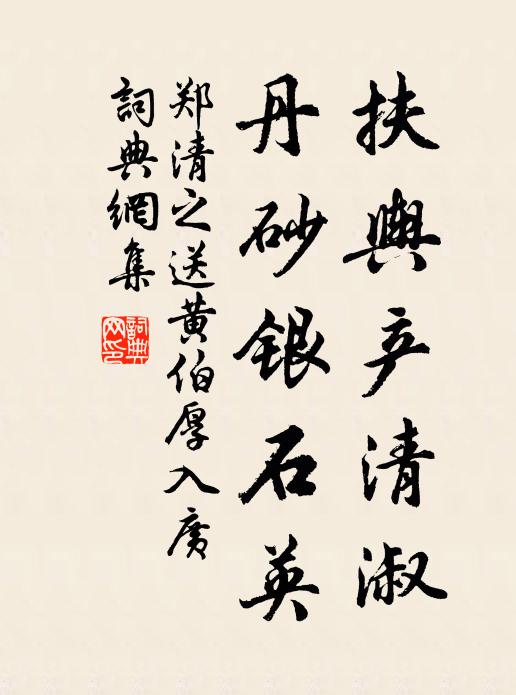 扶輿产清淑
丹砂银石英
郑清之送黄伯厚入广
詞典網集
詞典网印